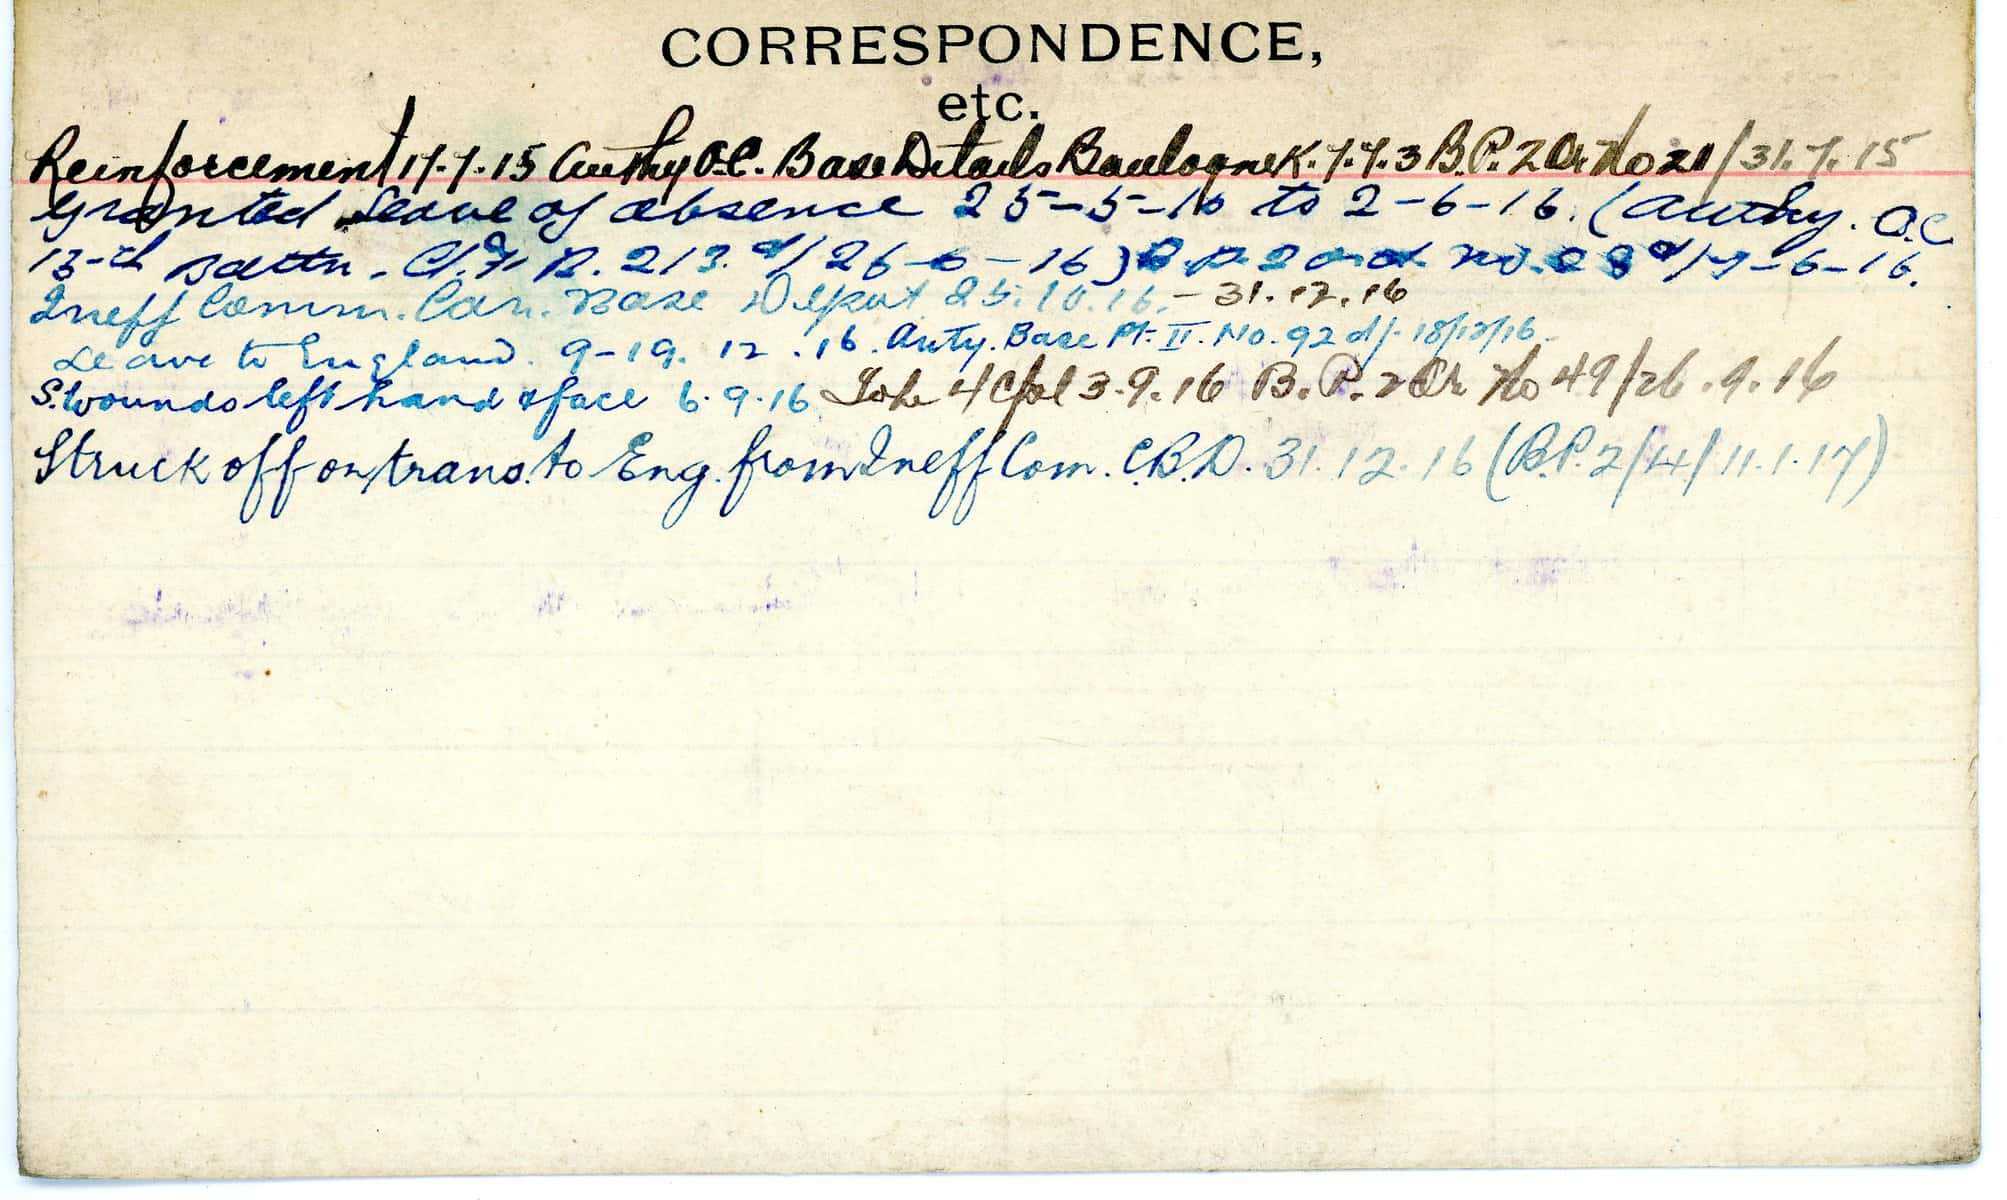 CORRESPONDENCE,
etc.
Reinforcement 17.7.15 Authy O.C. Base Details Boulogne K.7.7.3 B.P. 2 Or No 21/31.7.15
Granted Leave of absence 25-5-16 to 2-6-16. (Authy. O.C.
13-th Battn. C/. R. 213. d/26-6-16) B.P. 2 ord. No. 28 d/7-6-16.
Ineff Comm. Can. Base Depot 25.10.16. - 31.12.16
Leave to England. 9-19. 12. 16. Auty. Base Pt. II. No. 92 d/- 18/12/16.
S. Wounds left hand & face 6.9.16 To be 4 Cpl 3.9.16 B.P. 2 Or No 49/26.9.16
Struck off on trans. to Eng. from Ineff Com. C.B.D. 31.12.16 (B.P. 2/4/11.1.17)